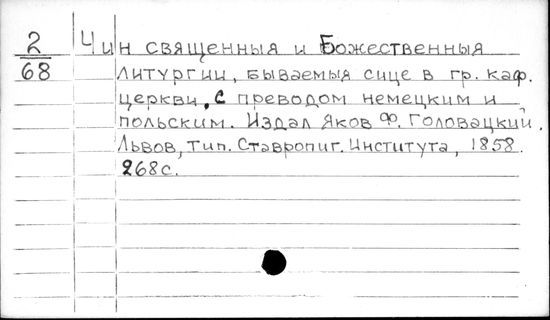 2
68
Чин священныя и Божественныя
литургии, бываемыя сице в гр. каф.
церкви, с преводом немецким и
польским. Издал Яков Ф. Головацкий.
Львов, тип. Ставропиг. Института, 1858.
268с.